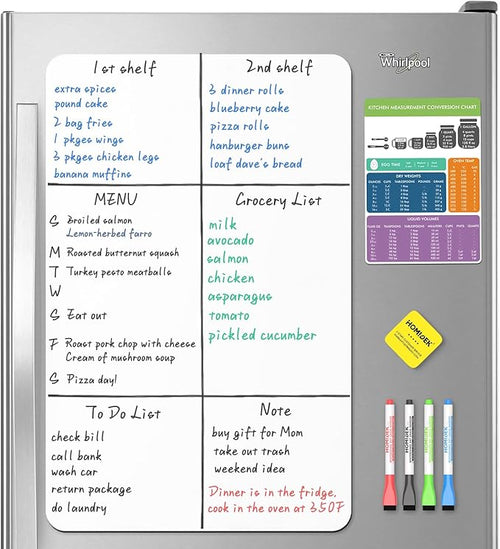 1st shelf
extra spices
pound cake
2 bag fries
1 pkges wings
3 pkges chicken legs
banana muffins
2nd shelf
3 dinner rolls
blueberry cake
pizza rolls
hamburger buns
loaf dave's bread
MENU
S Broiled salmon
Lemon-herbed farro
M Roasted butternut squash
T Turkey pesto meatballs
W
S Eat out
F Roast pork chop with cheese
Cream of mushroom soup
S Pizza day!
Grocery List
milk
avocado
salmon
chicken
asparagus
tomato
pickled cucumber
To Do List
check bill
call bank
wash car
return package
do laundry
Note
buy gift for Mom
take out trash
weekend idea
Dinner is in the fridge,
cook in the oven at 350F
Whirlpool
KITCHEN MEASUREMENT CONVERSION CHART
EGG TIME
OVEN TEMP
DRY WEIGHTS
LIQUID VOLUMES
HOMIDEK
HOMIDEK